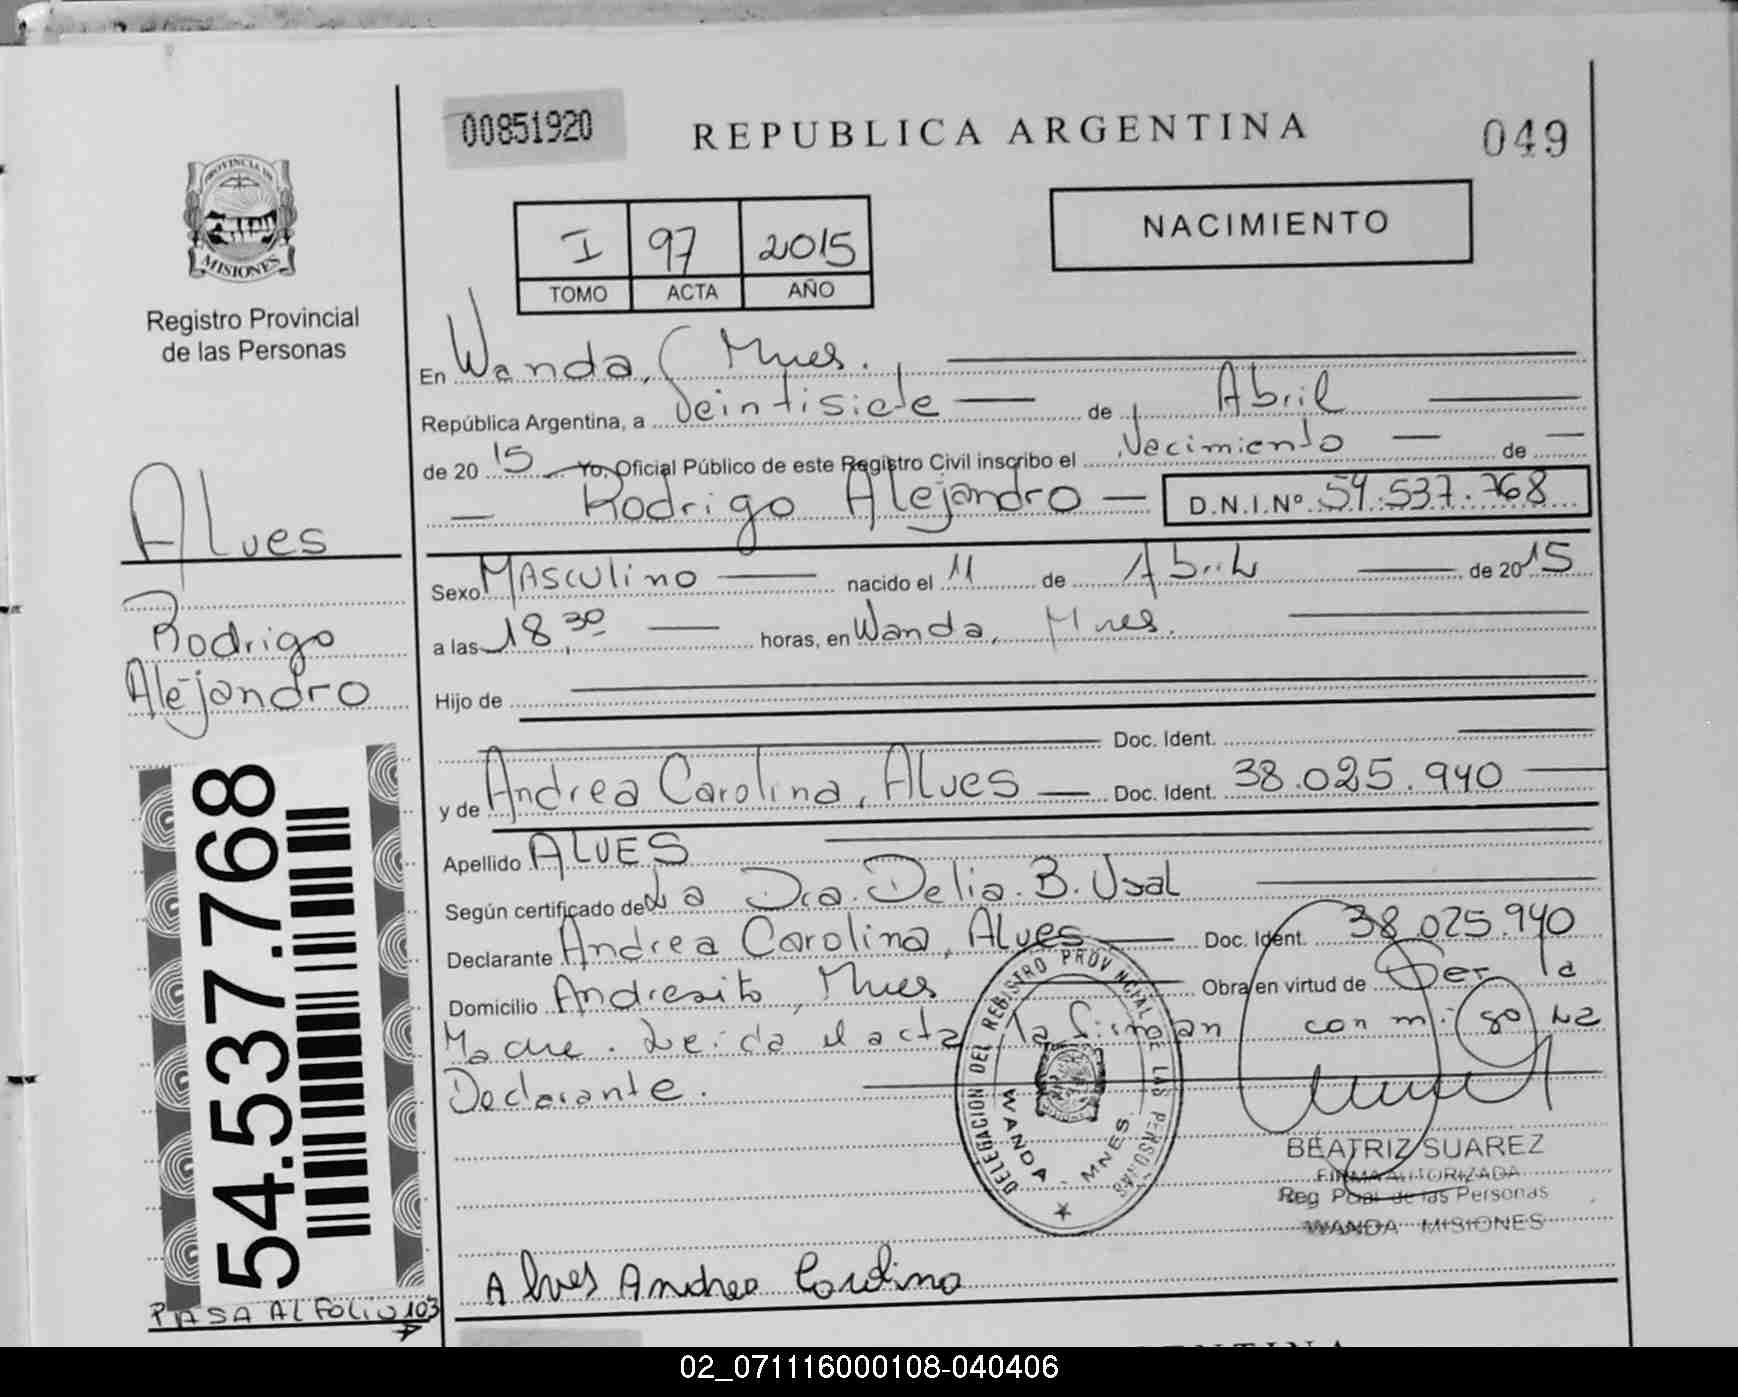 00851920
REPUBLICA ARGENTINA
049
PROVINCIA DE
MISIONES
Registro Provincial
de las Personas
I 97 2015
TOMO ACTA AÑO
NACIMIENTO
En Wanda, Mnes.
República Argentina, a Veintisiete de Abril
de 20 15 Yo, Oficial Público de este Registro Civil inscribo el Nacimiento de
Rodrigo Alejandro D.N.I.Nº 54.537.768
Sexo Masculino nacido el 11 de Abril de 2015
a las 18,30 horas, en Wanda, Mnes.
Hijo de
Doc. Ident.
y de Andrea Carolina, Alves Doc. Ident. 38.025.940
Apellido ALVES
Según certificado de La Dra. Delia. B. Usal
Declarante Andrea Carolina, Alves Doc. Ident. 38.025.940
Domicilio Andresito, Mnes Obra en virtud de Ser la
Madre. Leida el acta la firman conmigo La
Declarante.
Alves
Rodrigo
Alejandro
54.537.768
PASA AL FOLIO 103
DELEGACION DEL REGISTRO PROVINCIAL DE LAS PERSONAS
WANDA - MNES.
BEATRIZ SUAREZ
FIRMA AUTORIZADA
Reg Pcial de las Personas
WANDA MISIONES
Alves Andrea Carolina
02_071116000108-040406